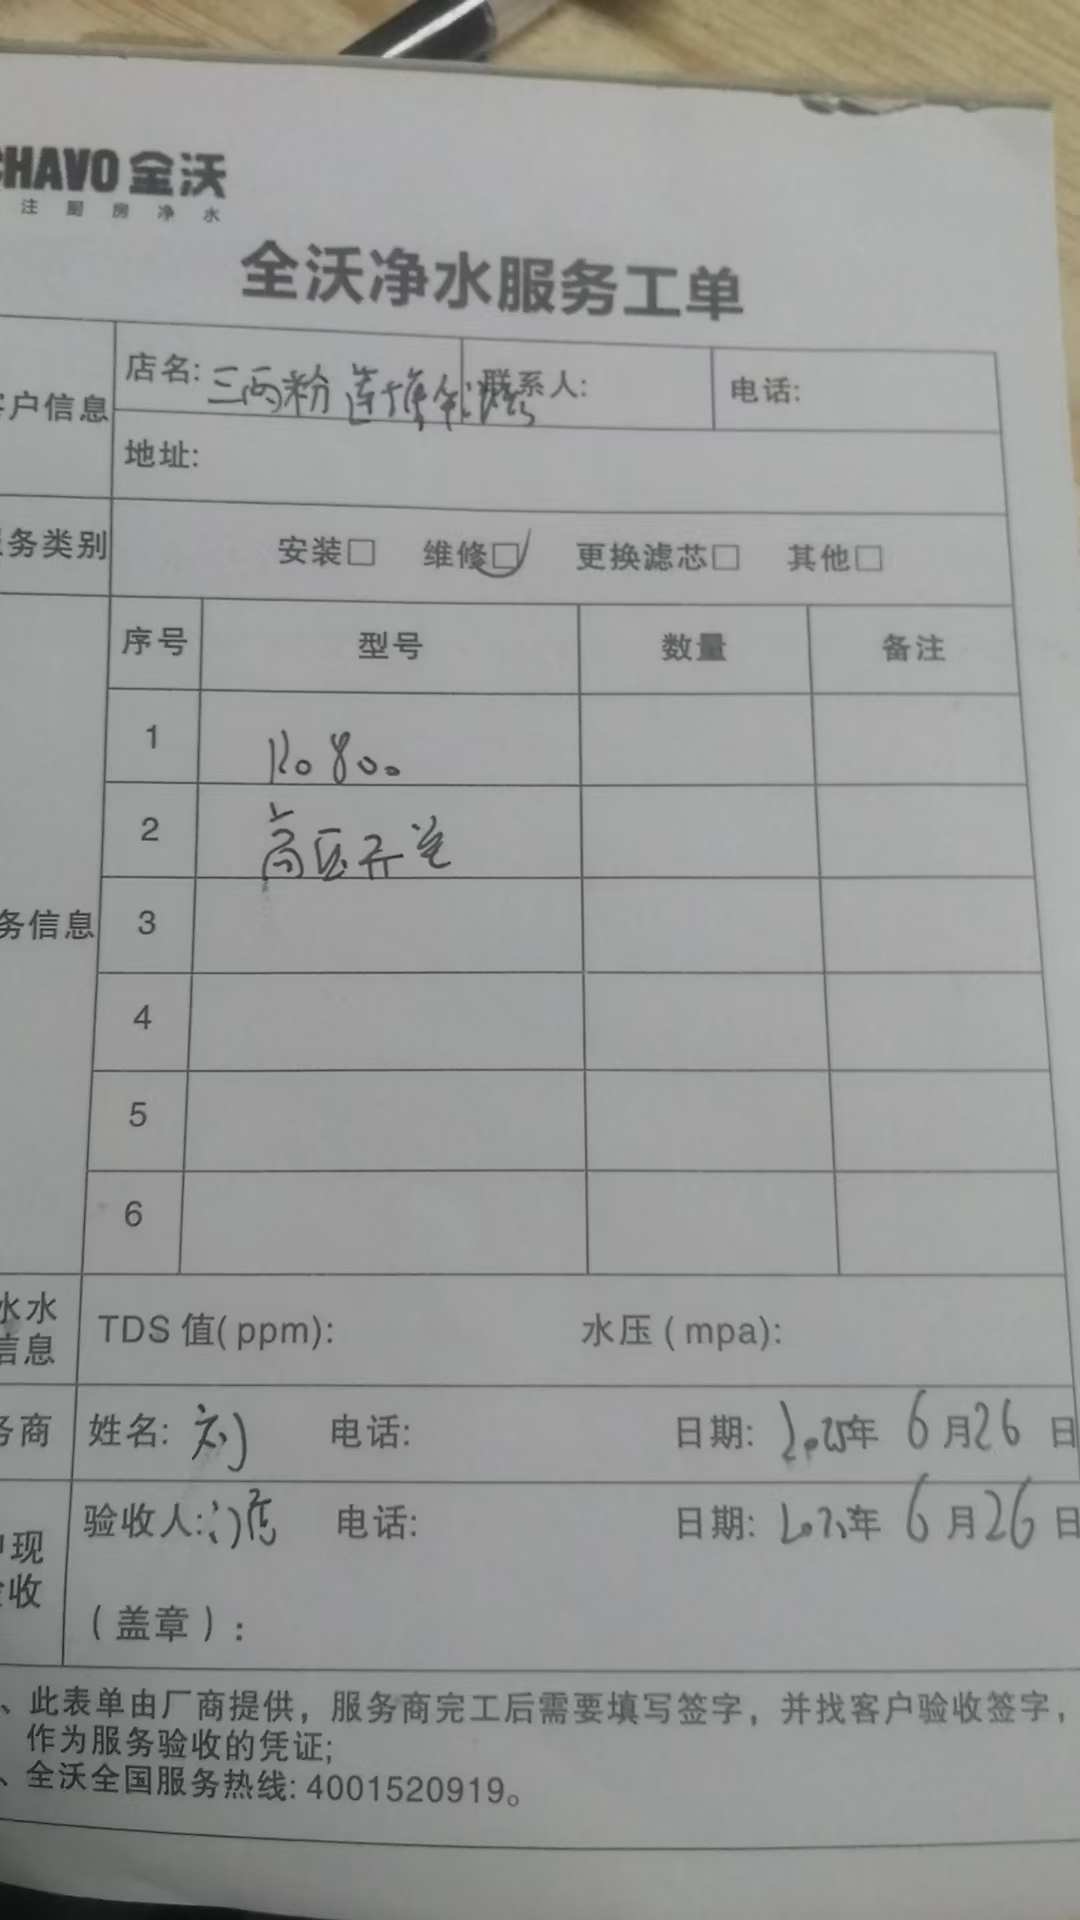 CHAVO 全沃
注厨房净水
全沃净水服务工单
客户信息 店名: 三两粉 联系人: 电话:
地址:
服务类别 安装□ 维修□ 更换滤芯□ 其他□
序号 型号 数量 备注
1 Ro 800
2 高压开关
务信息 3
4
5
6
水水 信息 TDS 值(ppm): 水压(mpa):
务商 姓名: 刘 电话: 日期: 2025年 6月26日
现 收 验收人: 电话: 日期: 2025年 6月26日
(盖章):
、此表单由厂商提供，服务商完工后需要填写签字，并找客户验收签字，
作为服务验收的凭证;
、全沃全国服务热线: 4001520919。